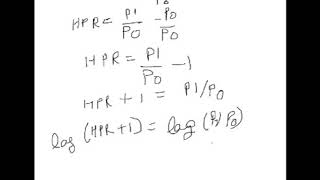 P0
HPR = P1/P0 - P0/P0
HPR = P1/P0 - 1
HPR + 1 = P1/P0
log (HPR + 1) = log (P1/P0)